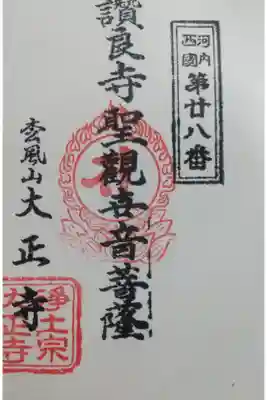 河内
西國
第廿八番
讚良寺聖觀世音菩薩
雲風山大正寺
淨土宗
大正寺